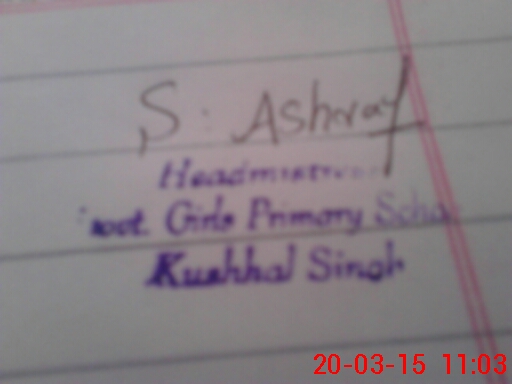 S. Ashraf
Headmistress
Govt. Girls Primary Scho
Kushhal Singh
20-03-15 11:03